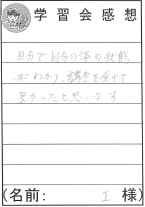 学習会感想
自分で自分の体の状態
がわかり、講座を受けて
良かったと思います
(名前: I 様)